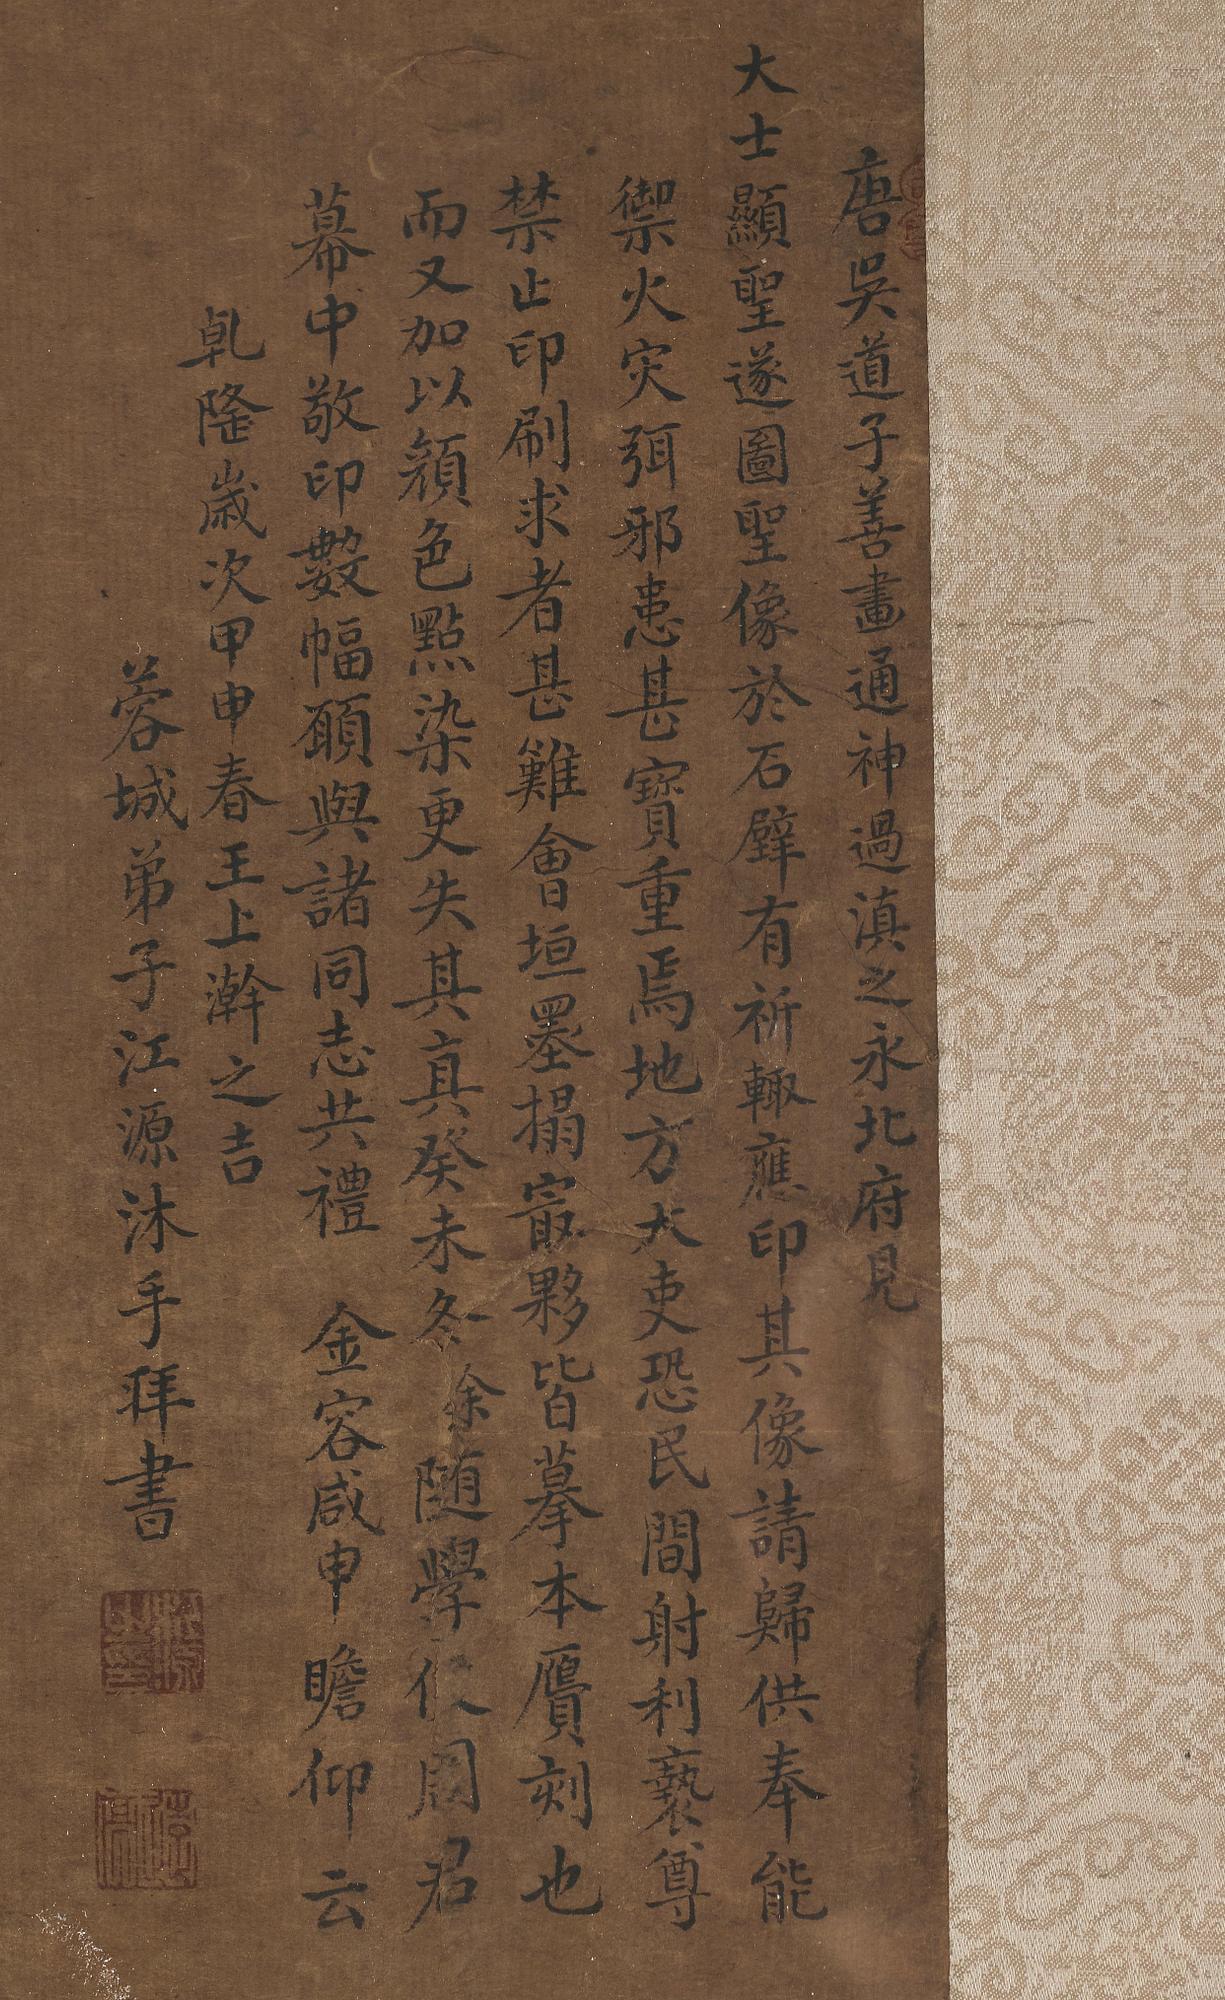 唐吳道子善畫通神過滇之永北府見
大士顯聖遂圖聖像於石壁有祈輙應印其像請歸供奉能
禦火灾弭邪患甚寶重焉地方大吏恐民間射利褻尊
禁止印刷求者甚難會垣墨搨㝡夥皆摹本贋刻也
而又加以顔色點染更失其真癸未冬余随學使周君
幕中敬印數幅願與諸同志共禮 金容咸申瞻仰云
乹隆嵗次甲申春王上澣之吉
蓉城弟子江源沐手拜書